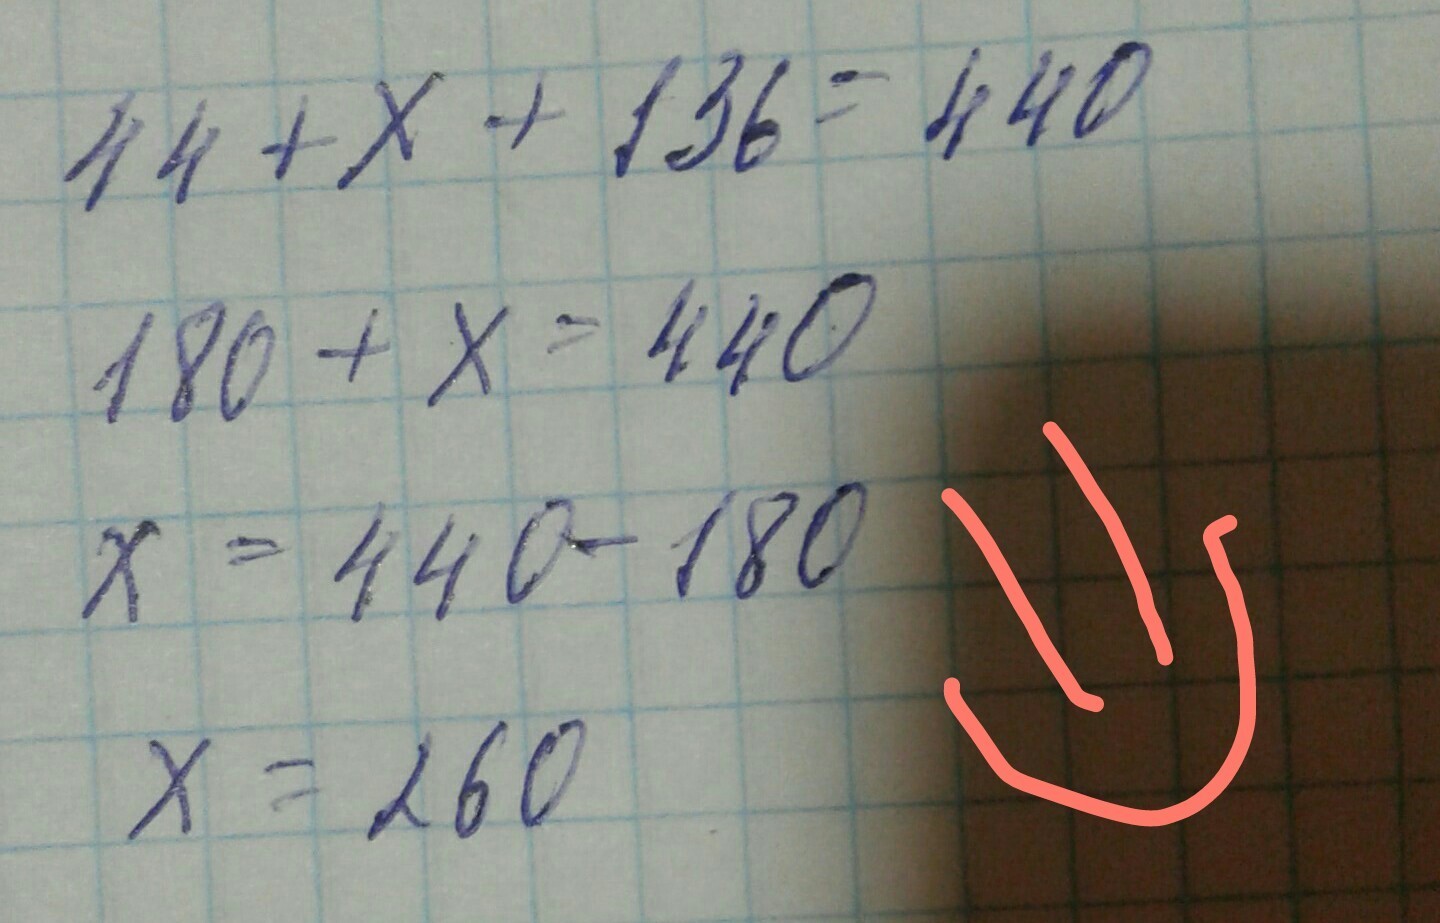 44 + x + 136 = 440
180 + x = 440
x = 440 - 180
x = 260